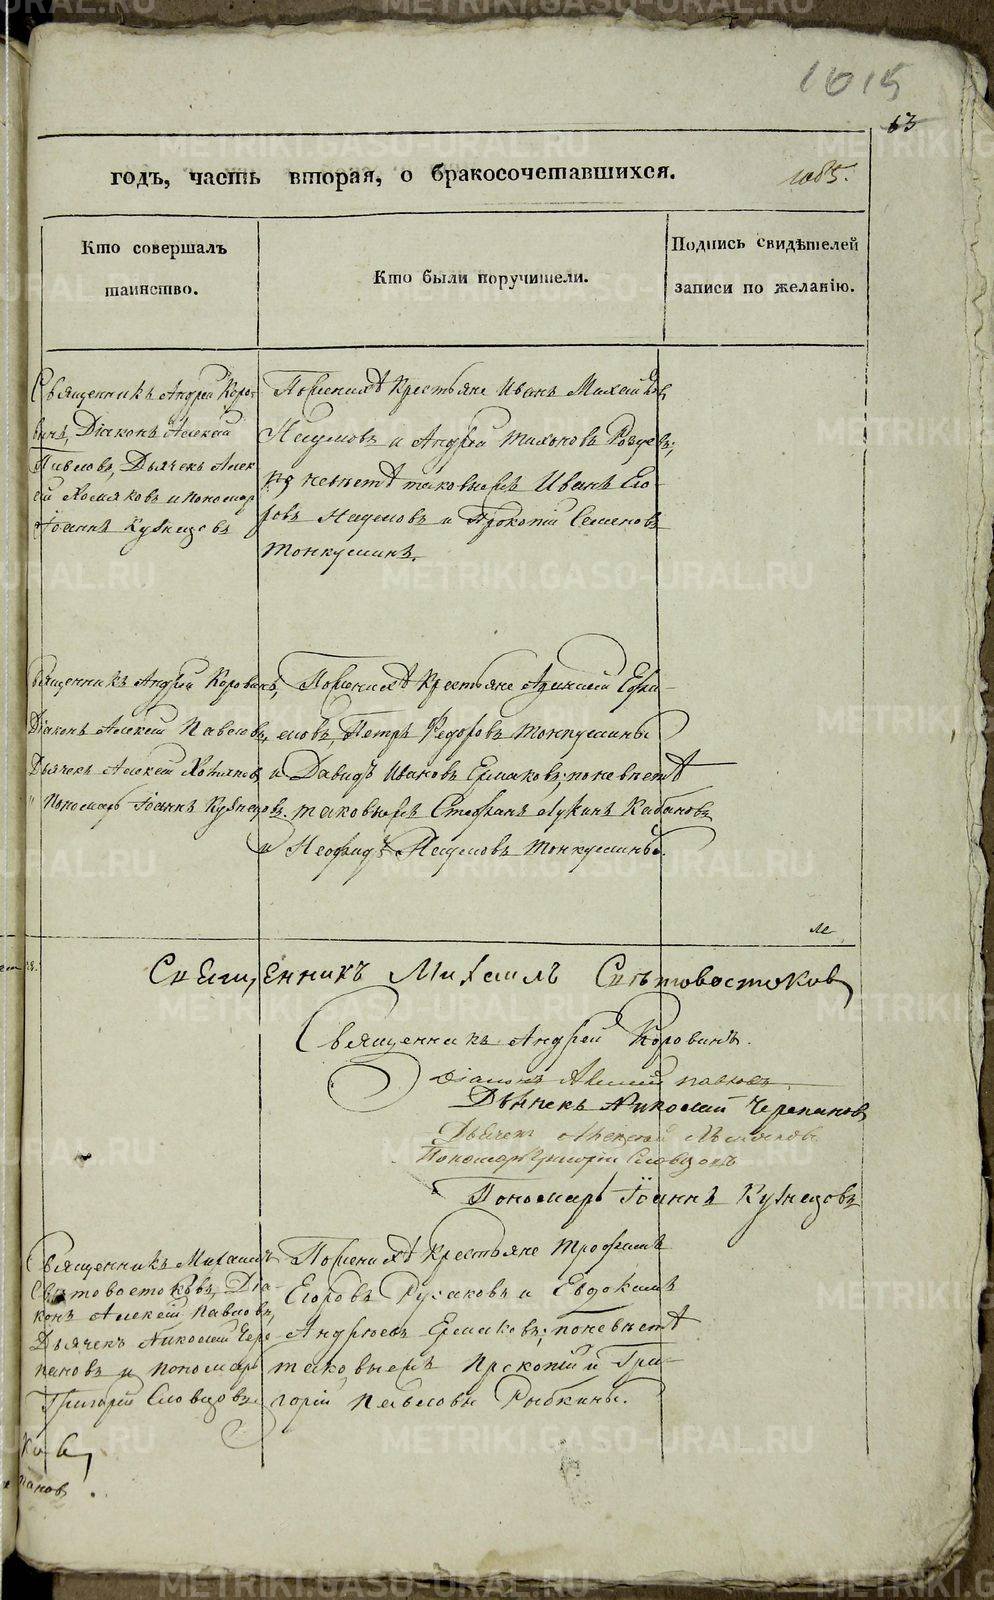 1015
63
годъ, часть вторая, о бракосочетавшихся.
1085.
Кто совершалъ
таинство.
Кто были поручители.
Подпись свидѣтелей
записи по желанію.
Священникъ Андрей Коро-
винъ, Діаконъ Алексей
Павловъ, Дьячекъ Алек
ей Хомяковъ и пономар
Іоаннъ Кузнецовъ
По женихѣ крестьяне Иванъ Михайловъ
Наумовъ и Андрей Тихоновъ
по невѣстѣ таковыежъ Иванъ Его-
ровъ Наумовъ и Прокопій Семеновъ
Тонкушинъ.
Священникъ Андрей Коровинъ,
Діаконъ Алексей Павловъ,
Дьячекъ Алексей Хомяковъ
Пономарь Іоаннъ Кузнецовъ.
По женихѣ крестьяне
Петръ Федоровъ Тонкушины
и Давидъ Ивановъ Ермаковъ; по невѣстѣ
таковыежъ Стефанъ Лукинъ Кабановъ
и Наумовъ Тонкушины.
Священникъ Михаилъ Свѣтовостоковъ
Священникъ Андрей Коровинъ.
Діаконъ Алексей Павловъ
Дьячекъ Николай Черепановъ
Дьячекъ Алексей
Пономарь Григорій Словцовъ
Пономарь Іоаннъ Кузнецовъ
Священникъ Михаилъ
Свѣтовостоковъ, Діа-
конъ Алексій Павловъ,
Дьячекъ Николай Чере
пановъ и пономарь
Григорій Словцовъ
По женихѣ крестьяне Трофимъ
Егоровъ Русаковъ и Евдокимъ
Андреевъ Ермаковъ; по невѣстѣ
таковыежъ Прокопій и Гри-
горій Павловы Рыбкины.
пановъ
METRIKI.GASO-URAL.RU